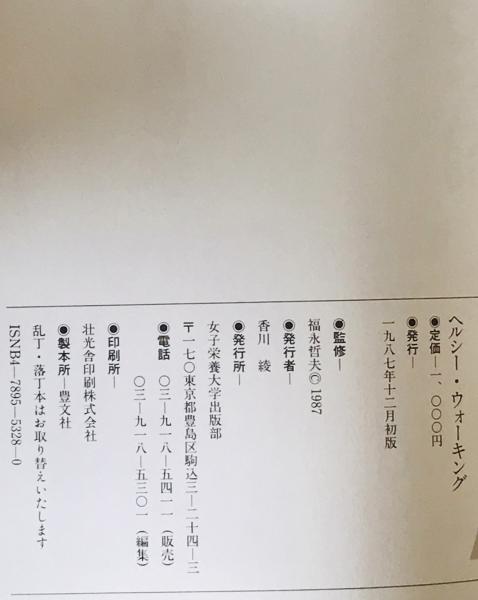 ヘルシー・ウォーキング
●定価―一、〇〇〇円
●発行―
一九八七年十二月初版
●監修―
福永哲夫© 1987
●発行者―
香川　綾
●発行所―
女子栄養大学出版部
〒一七〇東京都豊島区駒込三―二十四―三
●電話　〇三―九一八―五四一一（販売）
〇三―九一八―五三〇一（編集）
●印刷所―
壮光舎印刷株式会社
●製本所―豊文社
乱丁・落丁本はお取り替えいたします
ISNB4―7895―5328―0